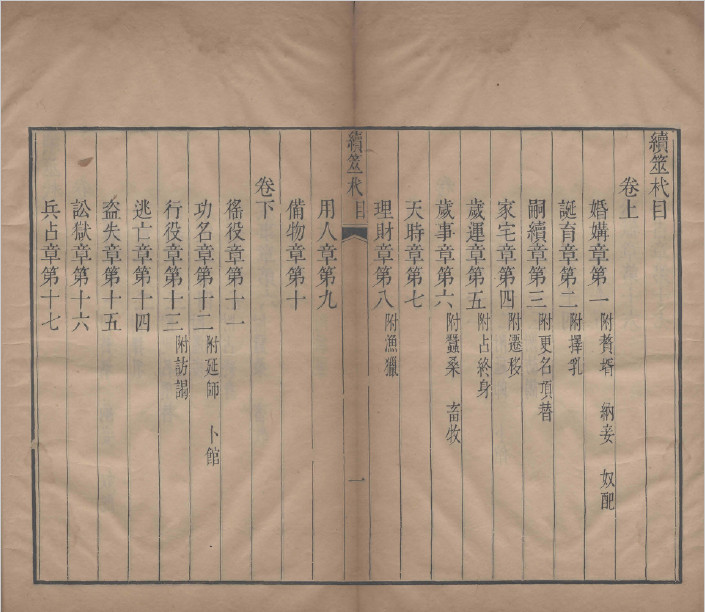 續筮杙目
卷上
婚媾章第一 附贅壻 納妾 奴配
誕育章第二 附擇乳
嗣續章第三 附更名項替
家宅章第四 附遷移
歲運章第五 附占終身
歲事章第六 附蠶桑 畜牧
天時章第七
理財章第八 附漁獵
續筮杙 目 一
用人章第九
備物章第十
卷下
徭役章第十一
功名章第十二 附延師 卜館
行役章第十三 附訪謁
逃亡章第十四
盜失章第十五
訟獄章第十六
兵占章第十七